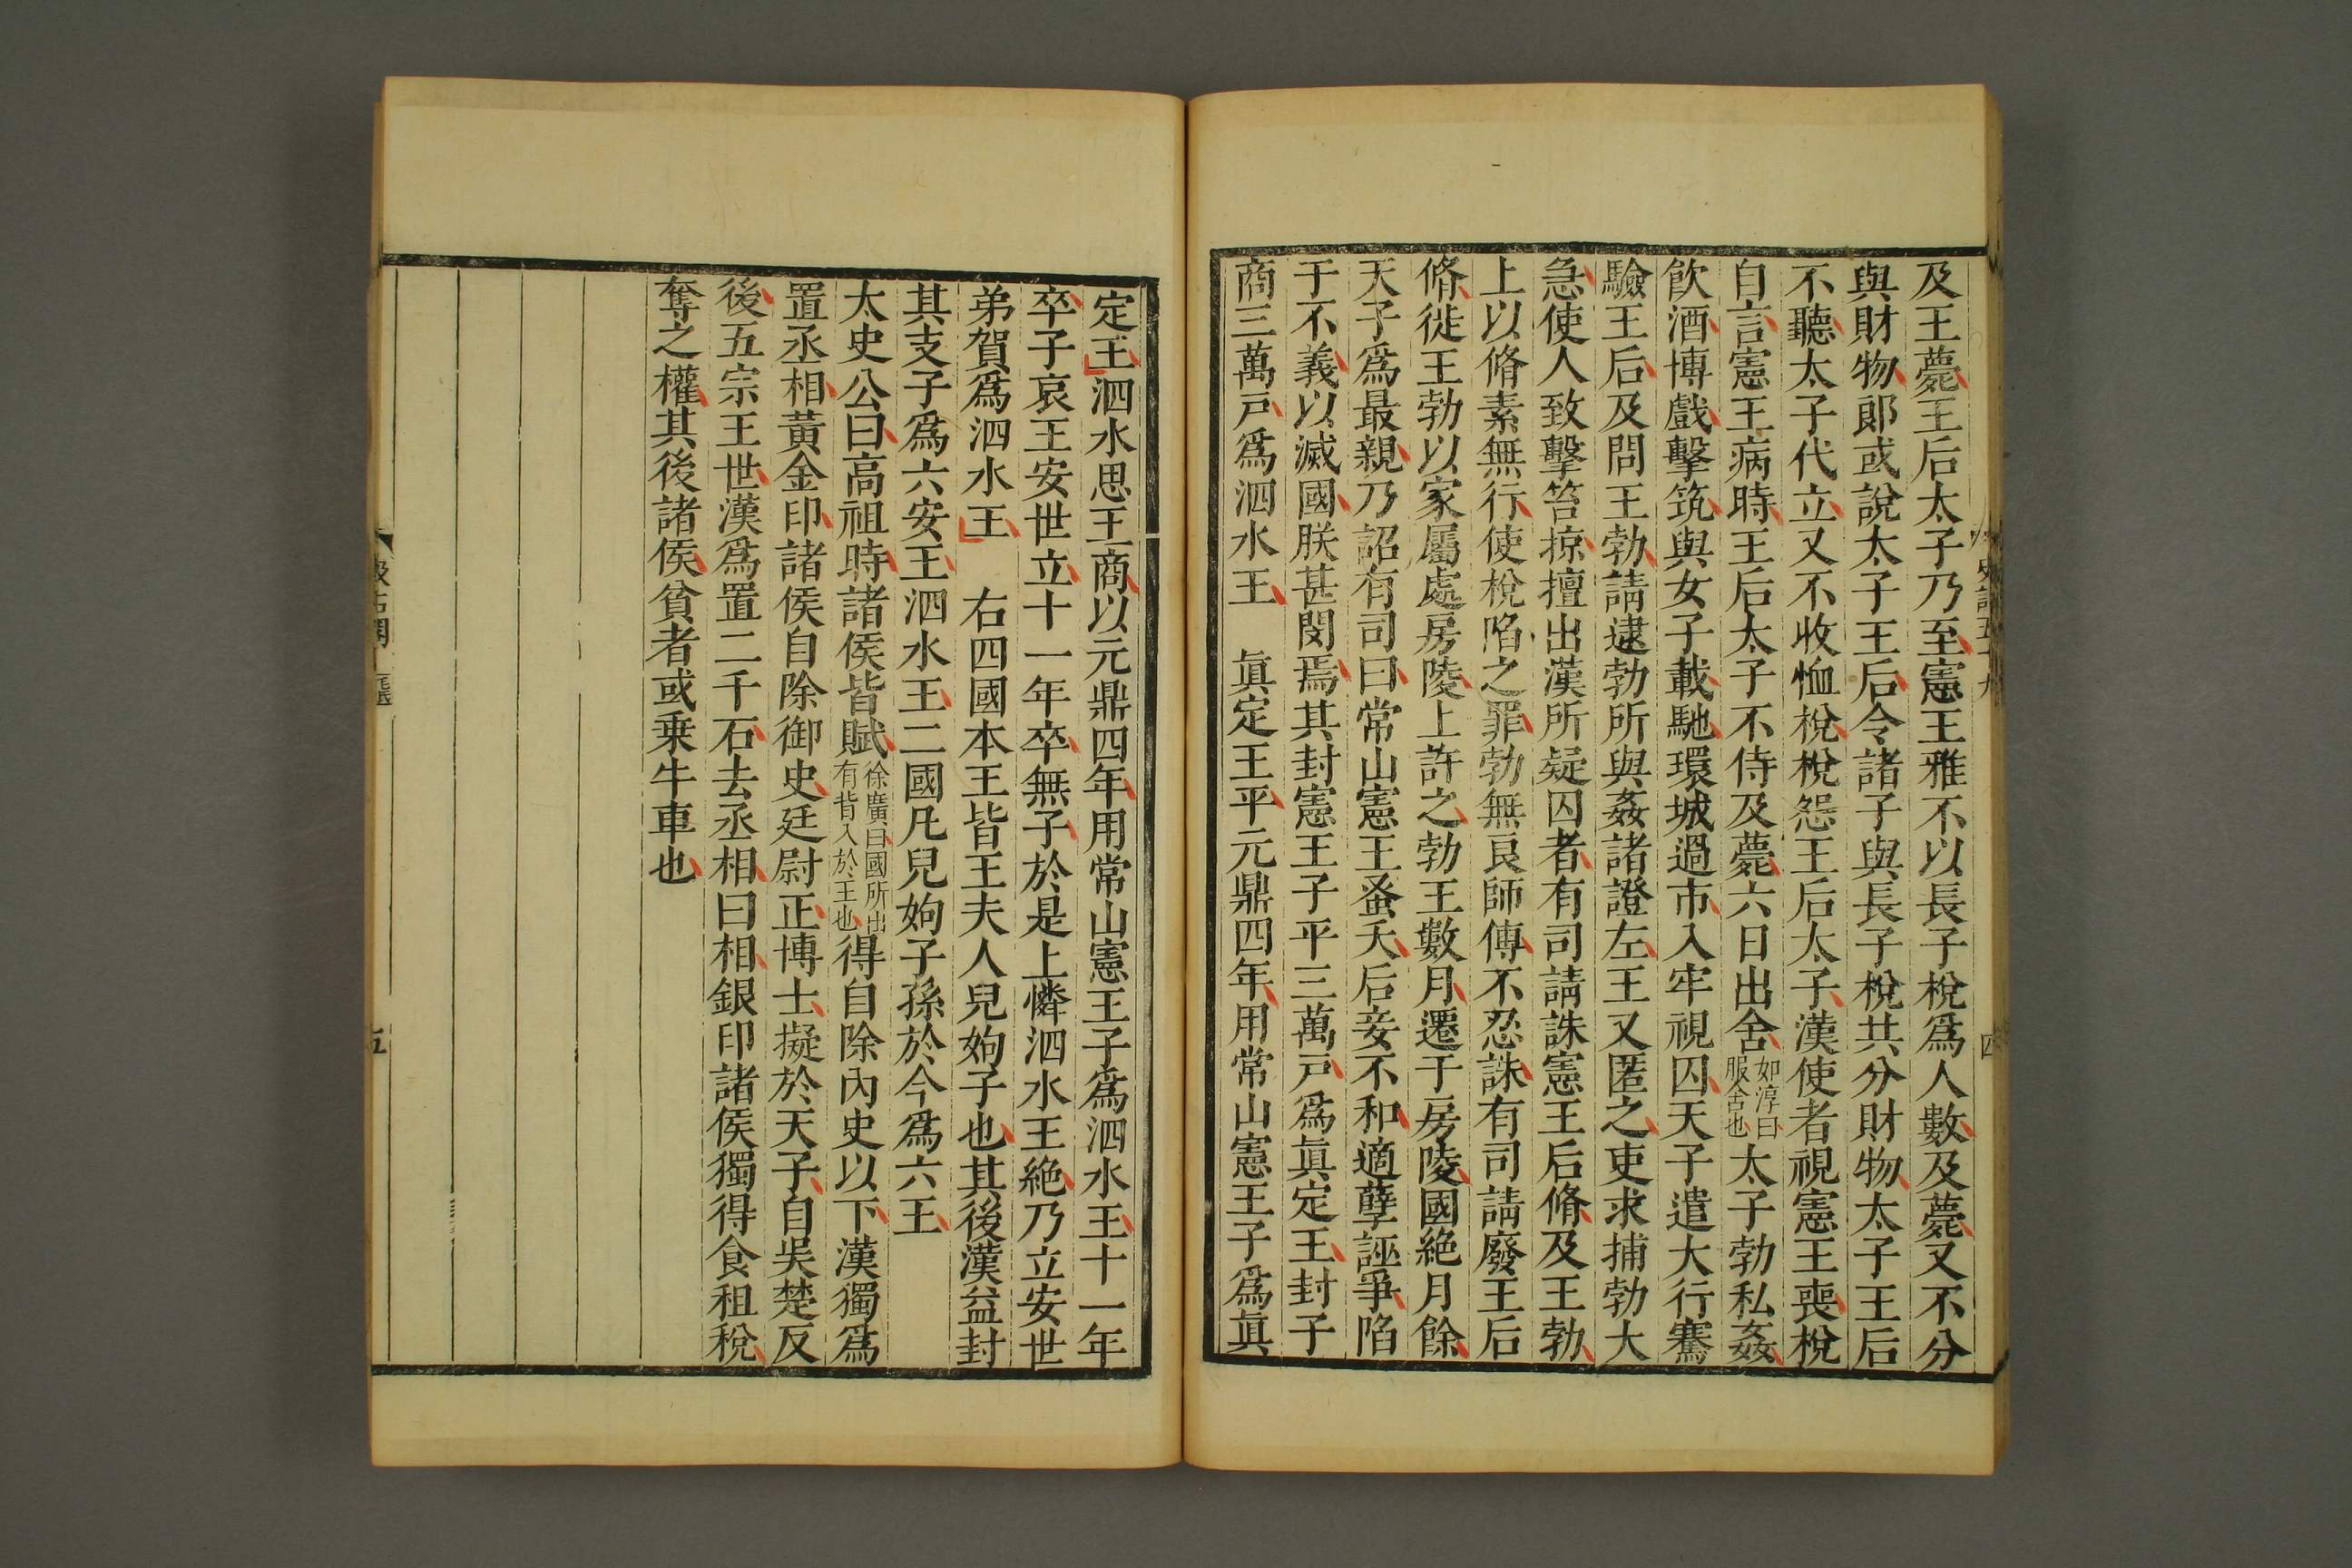 及王薨王后太子乃至憲王雅不以長子梲爲人數及薨又不分
與財物郎或說太子王后令諸子與長子梲共分財物太子王后
不聽太子代立又不收恤梲梲怨王后太子漢使者視憲王喪梲
自言憲王病時王后太子不侍及薨六日出舍如淳曰服舍也太子勃私姦
飮酒博戲擊筑與女子載馳環城過市入牢視囚天子遣大行騫
驗王后及問王勃請逮勃所與姦諸證左王又匿之吏求捕勃大
急使人致擊笞掠擅出漢所疑囚者有司請誅憲王后脩及王勃
上以脩素無行使梲陷之罪勃無良師傅不忍誅有司請廢王后
脩徙王勃以家屬處房陵上許之勃王數月遷于房陵國絶月餘
天子爲最親乃詔有司曰常山憲王蚤夭后妾不和適孽誣爭陷
于不義以滅國朕甚閔焉其封憲王子平三萬戸爲眞定王封子
商三萬戸爲泗水王　眞定王平元鼎四年用常山憲王子爲眞
定王泗水思王商以元鼎四年用常山憲王子爲泗水王十一年
卒子哀王安世立十一年卒無子於是上憐泗水王絶乃立安世
弟賀爲泗水王　右四國本王皆王夫人兒姁子也其後漢益封
其支子爲六安王泗水王二國凡兒姁子孫於今爲六王
太史公曰高祖時諸侯皆賦徐廣曰國所出有皆入於王也得自除內史以下漢獨爲
置丞相黃金印諸侯自除御史廷尉正博士擬於天子自吳楚反
後五宗王世漢爲置二千石去丞相曰相銀印諸侯獨得食租稅
奪之權其後諸侯貧者或乘牛車也
五